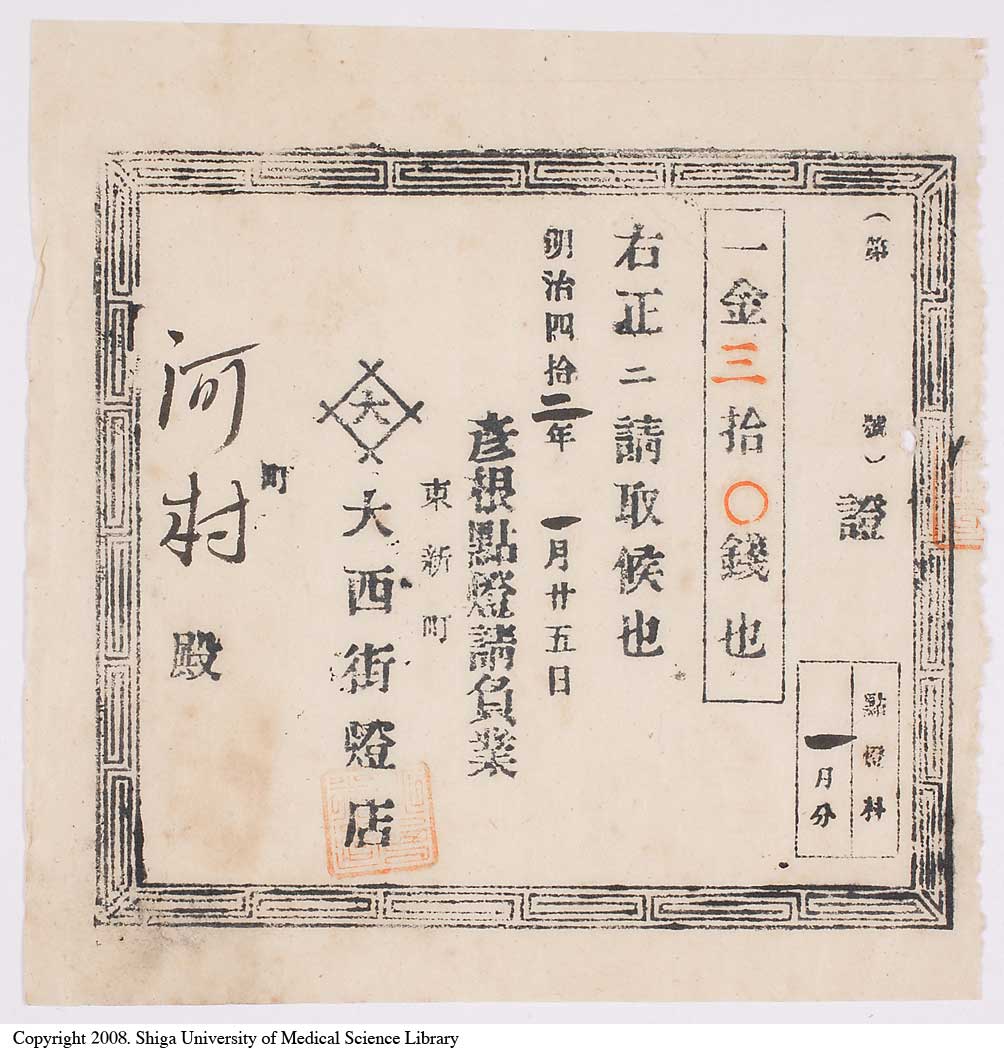 （第　號）
證
點燈料
一月分
一金三拾〇錢也
右正ニ請取候也
明治四拾二年一月廿五日
彦根點燈請負業
東新町
大
大西街燈店
町
河村殿
Copyright 2008. Shiga University of Medical Science Library